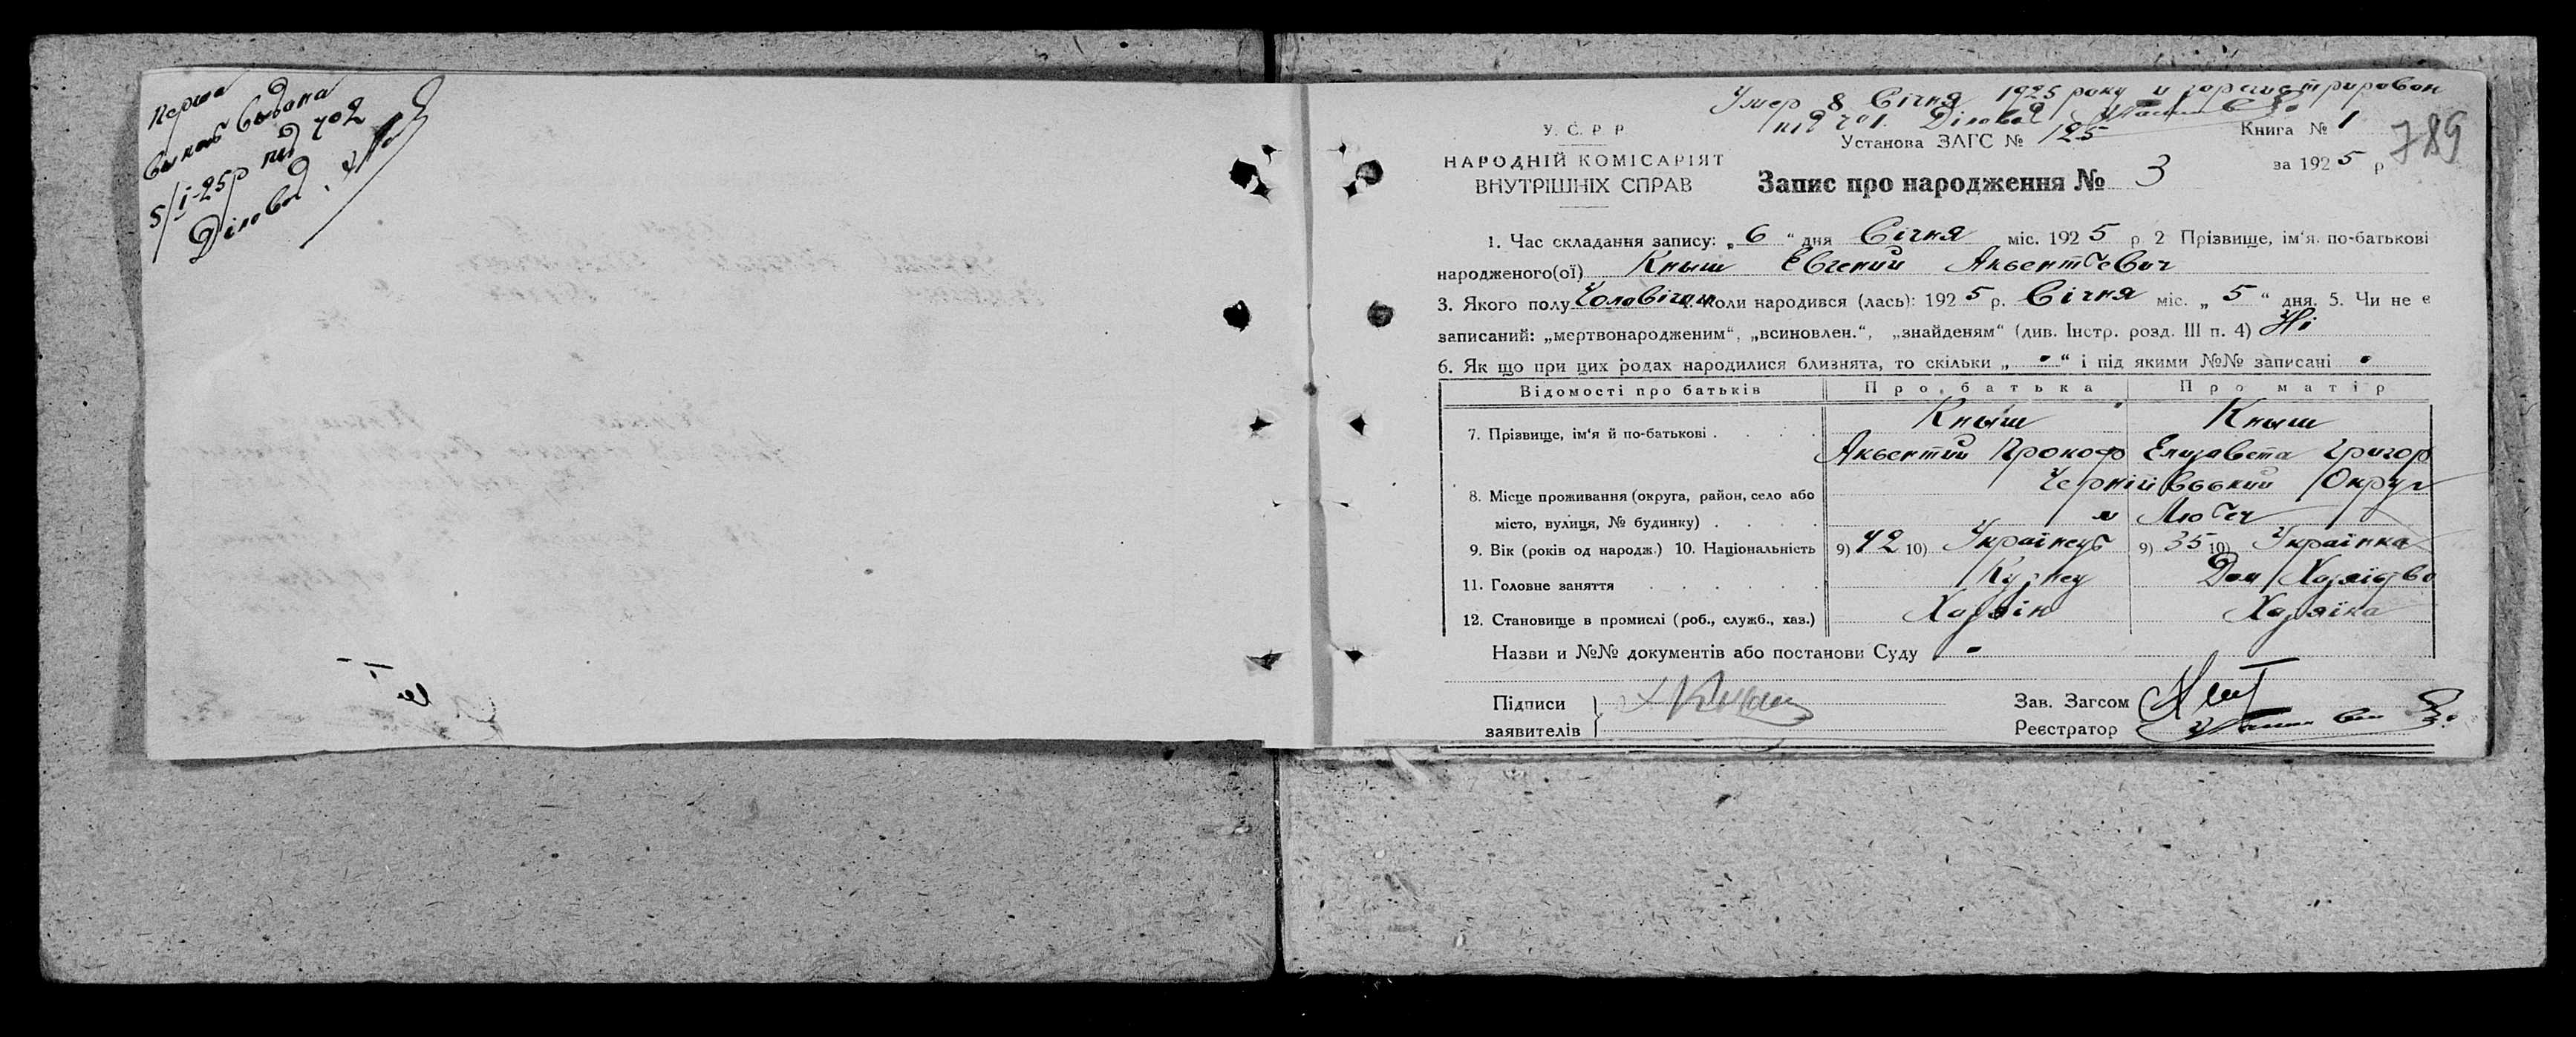 перша
выпись выдана
5/I-25р під № 2
Діловод
Умер 8 Січня 1925 року и зарегистрирован
під № 1. Діловод
У. С. Р. Р.
НАРОДНІЙ КОМІСАРІЯТ
ВНУТРІШНІХ СПРАВ
Установа ЗАГС № 125
Книга № 1
789
за 1925 р
Запис про народження № 3
1. Час складання запису: „6“ дня Січня міс. 1925 р 2 Прізвище, ім'я, по-батькові
народженого(ої) Кныш Евгений Аксентіевич
3. Якого полу Чоловічоі Коли народився (лась): 1925 р. Січня міс. „5“ дня. 5. Чи не є
записаний: „мертвонародженим“, „всиновлен.“, „знайденям“ (див. Інстр. розд. III п. 4) Ні
6. Як що при цих родах народилися близнята, то скільки „ “ і під якими №№ записані
Відомості про батьків Про батька Про матір
Кныш Кныш
7. Прізвище, ім'я й по-батькові . . . .
Аксентий Прокоф Елизавета Григор
Чернігівський Округ
8. Місце проживання (округа, район, село або
місто, вулиця, № будинку) . . . . м Любеч
9. Вік (років од народж.) 10. Національність 9) 42 10) Українець 9) 35 10) Українка
11. Головне заняття . . . . . Кузнец Дом Хазяїство
12. Становище в промислі (роб., служб., хаз.) Хазяін Хазяіка
Назви и №№ документів або постанови Суду
Підписи
заявителів
Кныш
Зав. Загсом
Реєстратор